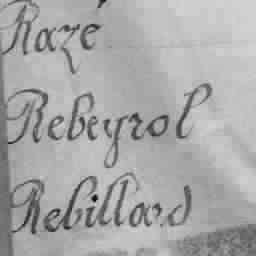 Razé
Rebeyrol
Rebillard